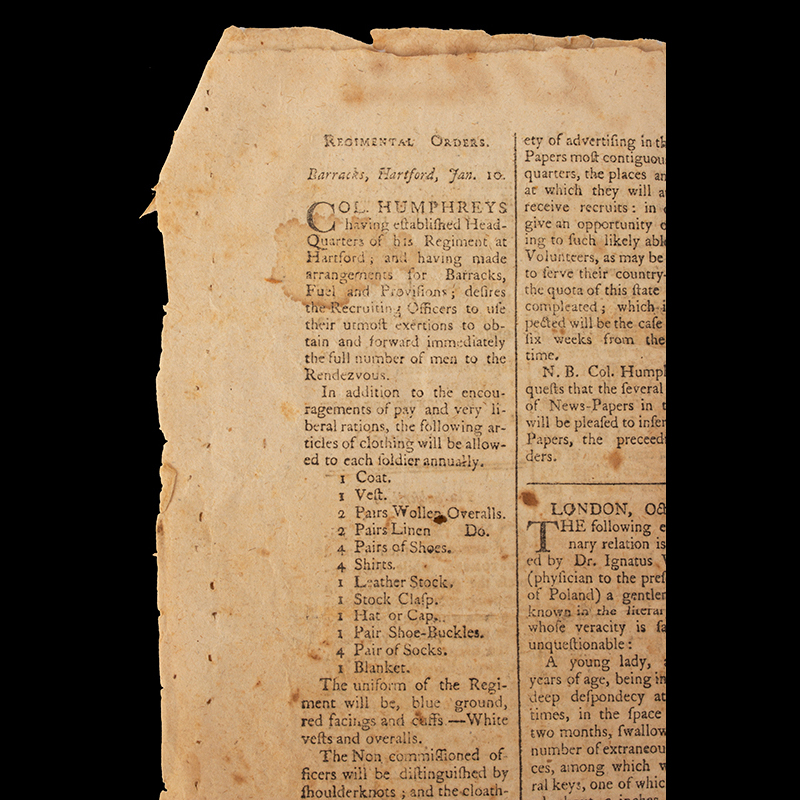 REGIMENTAL ORDERS.
Barracks, Hartford, Jan. 10.
COL. HUMPHREYS
having eſtabliſhed Head-
Quarters of his Regiment at
Hartford; and having made
arrangements for Barracks,
Fuel and Proviſions; deſires
the Recruiting Officers to uſe
their utmoſt exertions to ob-
tain and forward immediately
the full number of men to the
Rendezvous.
In addition to the encou-
ragements of pay and very li-
beral rations, the following ar-
ticles of clothing will be allow-
ed to each ſoldier annually.
1 Coat.
1 Veſt.
2 Pairs Wollen Overalls.
2 Pairs Linen Do.
4 Pairs of Shoes.
4 Shirts.
1 Leather Stock.
1 Stock Claſp.
1 Hat or Cap.
1 Pair Shoe-Buckles.
4 Pair of Socks.
1 Blanket.
The uniform of the Regi-
ment will be, blue ground,
red facings and cuffs —White
veſts and overalls.
The Non commiſſioned of-
ficers will be diſtinguiſhed by
ſhoulderknots; and the cloath-
ety of advertiſing in th
Papers moſt contiguou
quarters, the places an
at which they will a
receive recruits: in
give an opportunity
ing to ſuch likely abl
Volunteers, as may be
to ſerve their country
the quota of this ſtate
compleated; which
pected will be the caſe
ſix weeks from the
time.
N. B. Col. Humpl
queſts that the ſeveral
of News-Papers in
will be pleaſed to inſer
Papers, the preceed
ders.
LONDON, Oct
THE following e
nary relation is
ed by Dr. Ignatus
(phyſician to the preſ
of Poland) a gentle
known in the literar
whoſe veracity is fa
unqueſtionable:
A young lady,
years of age, being in
deep deſpondecy at
times, in the ſpace
two months, ſwallow
number of extraneou
ces, among which w
ral keys, one of whic